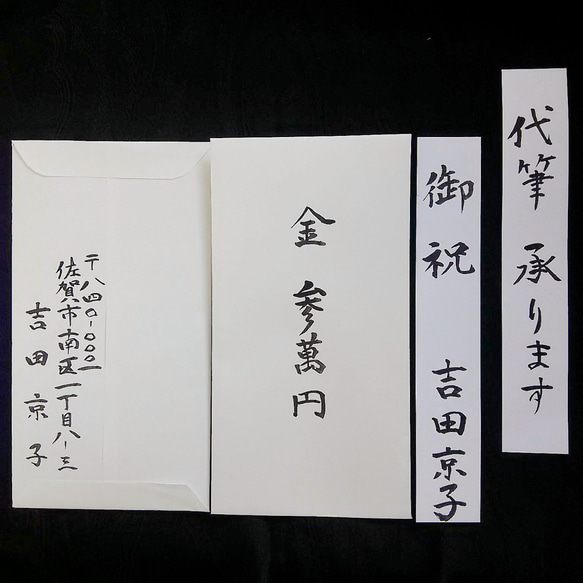 代筆 承ります
御祝 吉田京子
金 参萬円
〒八四〇-〇〇〇一
佐賀市南区一丁目八-三
吉田京子